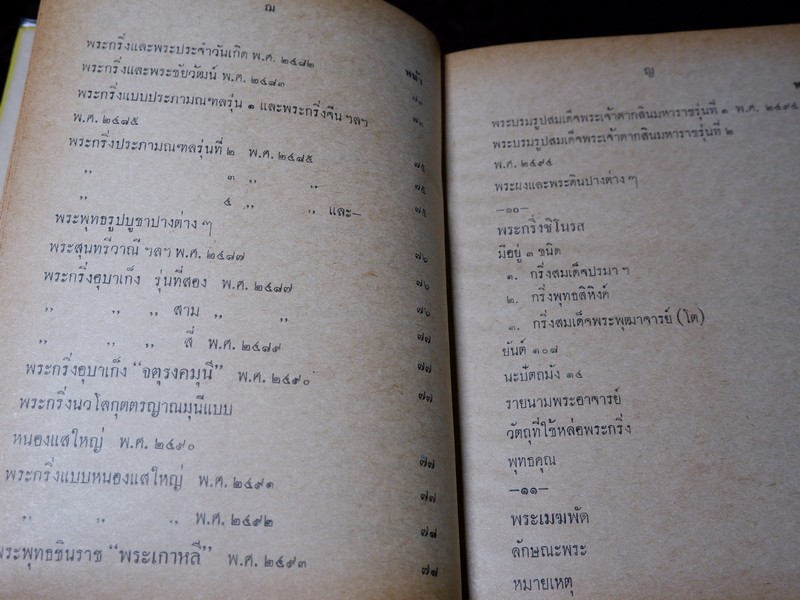 ฌ
หน้า
พระกริ่งและพระประจำวันเกิด พ.ศ. ๒๔๘๒ ๗๑
พระกริ่งและพระชัยวัฒน์ พ.ศ. ๒๔๘๓ ๗๒
พระกริ่งแบบประภามณฑลรุ่น ๑ และพระกริ่งจีน ฯลฯ
พ.ศ. ๒๔๘๕ ๗๕
พระกริ่งประภามณฑลรุ่นที่ ๒ พ.ศ. ๒๔๘๕ ๗๕
,, ๓ ,, ,, ๗๕
,, ๔ ,, ,, และ—
พระพุทธรูปบูชาปางต่าง ๆ ๗๖
พระสุนทรีวาณี ฯลฯ พ.ศ. ๒๔๘๗ ๗๖
พระกริ่งอุบาเก็ง รุ่นที่สอง พ.ศ. ๒๔๘๗ ๗๖
,, ,, ,, สาม ,, ,, ๗๗
,, ,, ,, สี่ พ.ศ. ๒๔๘๙ ๗๗
พระกริ่งอุบาเก็ง “จตุรงคมุนี” พ.ศ. ๒๔๙๐ ๗๗
พระกริ่งนวโลกุตตรญาณมุนีแบบ
หนองแสใหญ่ พ.ศ. ๒๔๙๐ ๗๗
พระกริ่งแบบหนองแสใหญ่ พ.ศ. ๒๔๙๑ ๗๗
,, ,, ,, พ.ศ. ๒๔๙๒ ๗๘
พระพุทธชินราช “พระเกาหลี” พ.ศ. ๒๔๙๓ ๗๘
ญ
พระบรมรูปสมเด็จพระเจ้าตากสินมหาราชรุ่นที่ ๑ พ.ศ. ๒๔๙๔
พระบรมรูปสมเด็จพระเจ้าตากสินมหาราชรุ่นที่ ๒
พ.ศ. ๒๔๙๔
พระผงและพระดินปางต่าง ๆ
—๑๐—
พระกริ่งชิโนรส
มีอยู่ ๓ ชนิด
๑. กริ่งสมเด็จปรมา ฯ
๒. กริ่งพุทธสิหิงค์
๓. กริ่งสมเด็จพระพุฒาจารย์ (โต)
ยันต์ ๑๐๘
นะปัตถมัง ๑๔
รายนามพระอาจารย์
วัตถุที่ใช้หล่อพระกริ่ง
พุทธคุณ
—๑๑—
พระเมฆพัด
ลักษณะพระ
หมายเหตุ